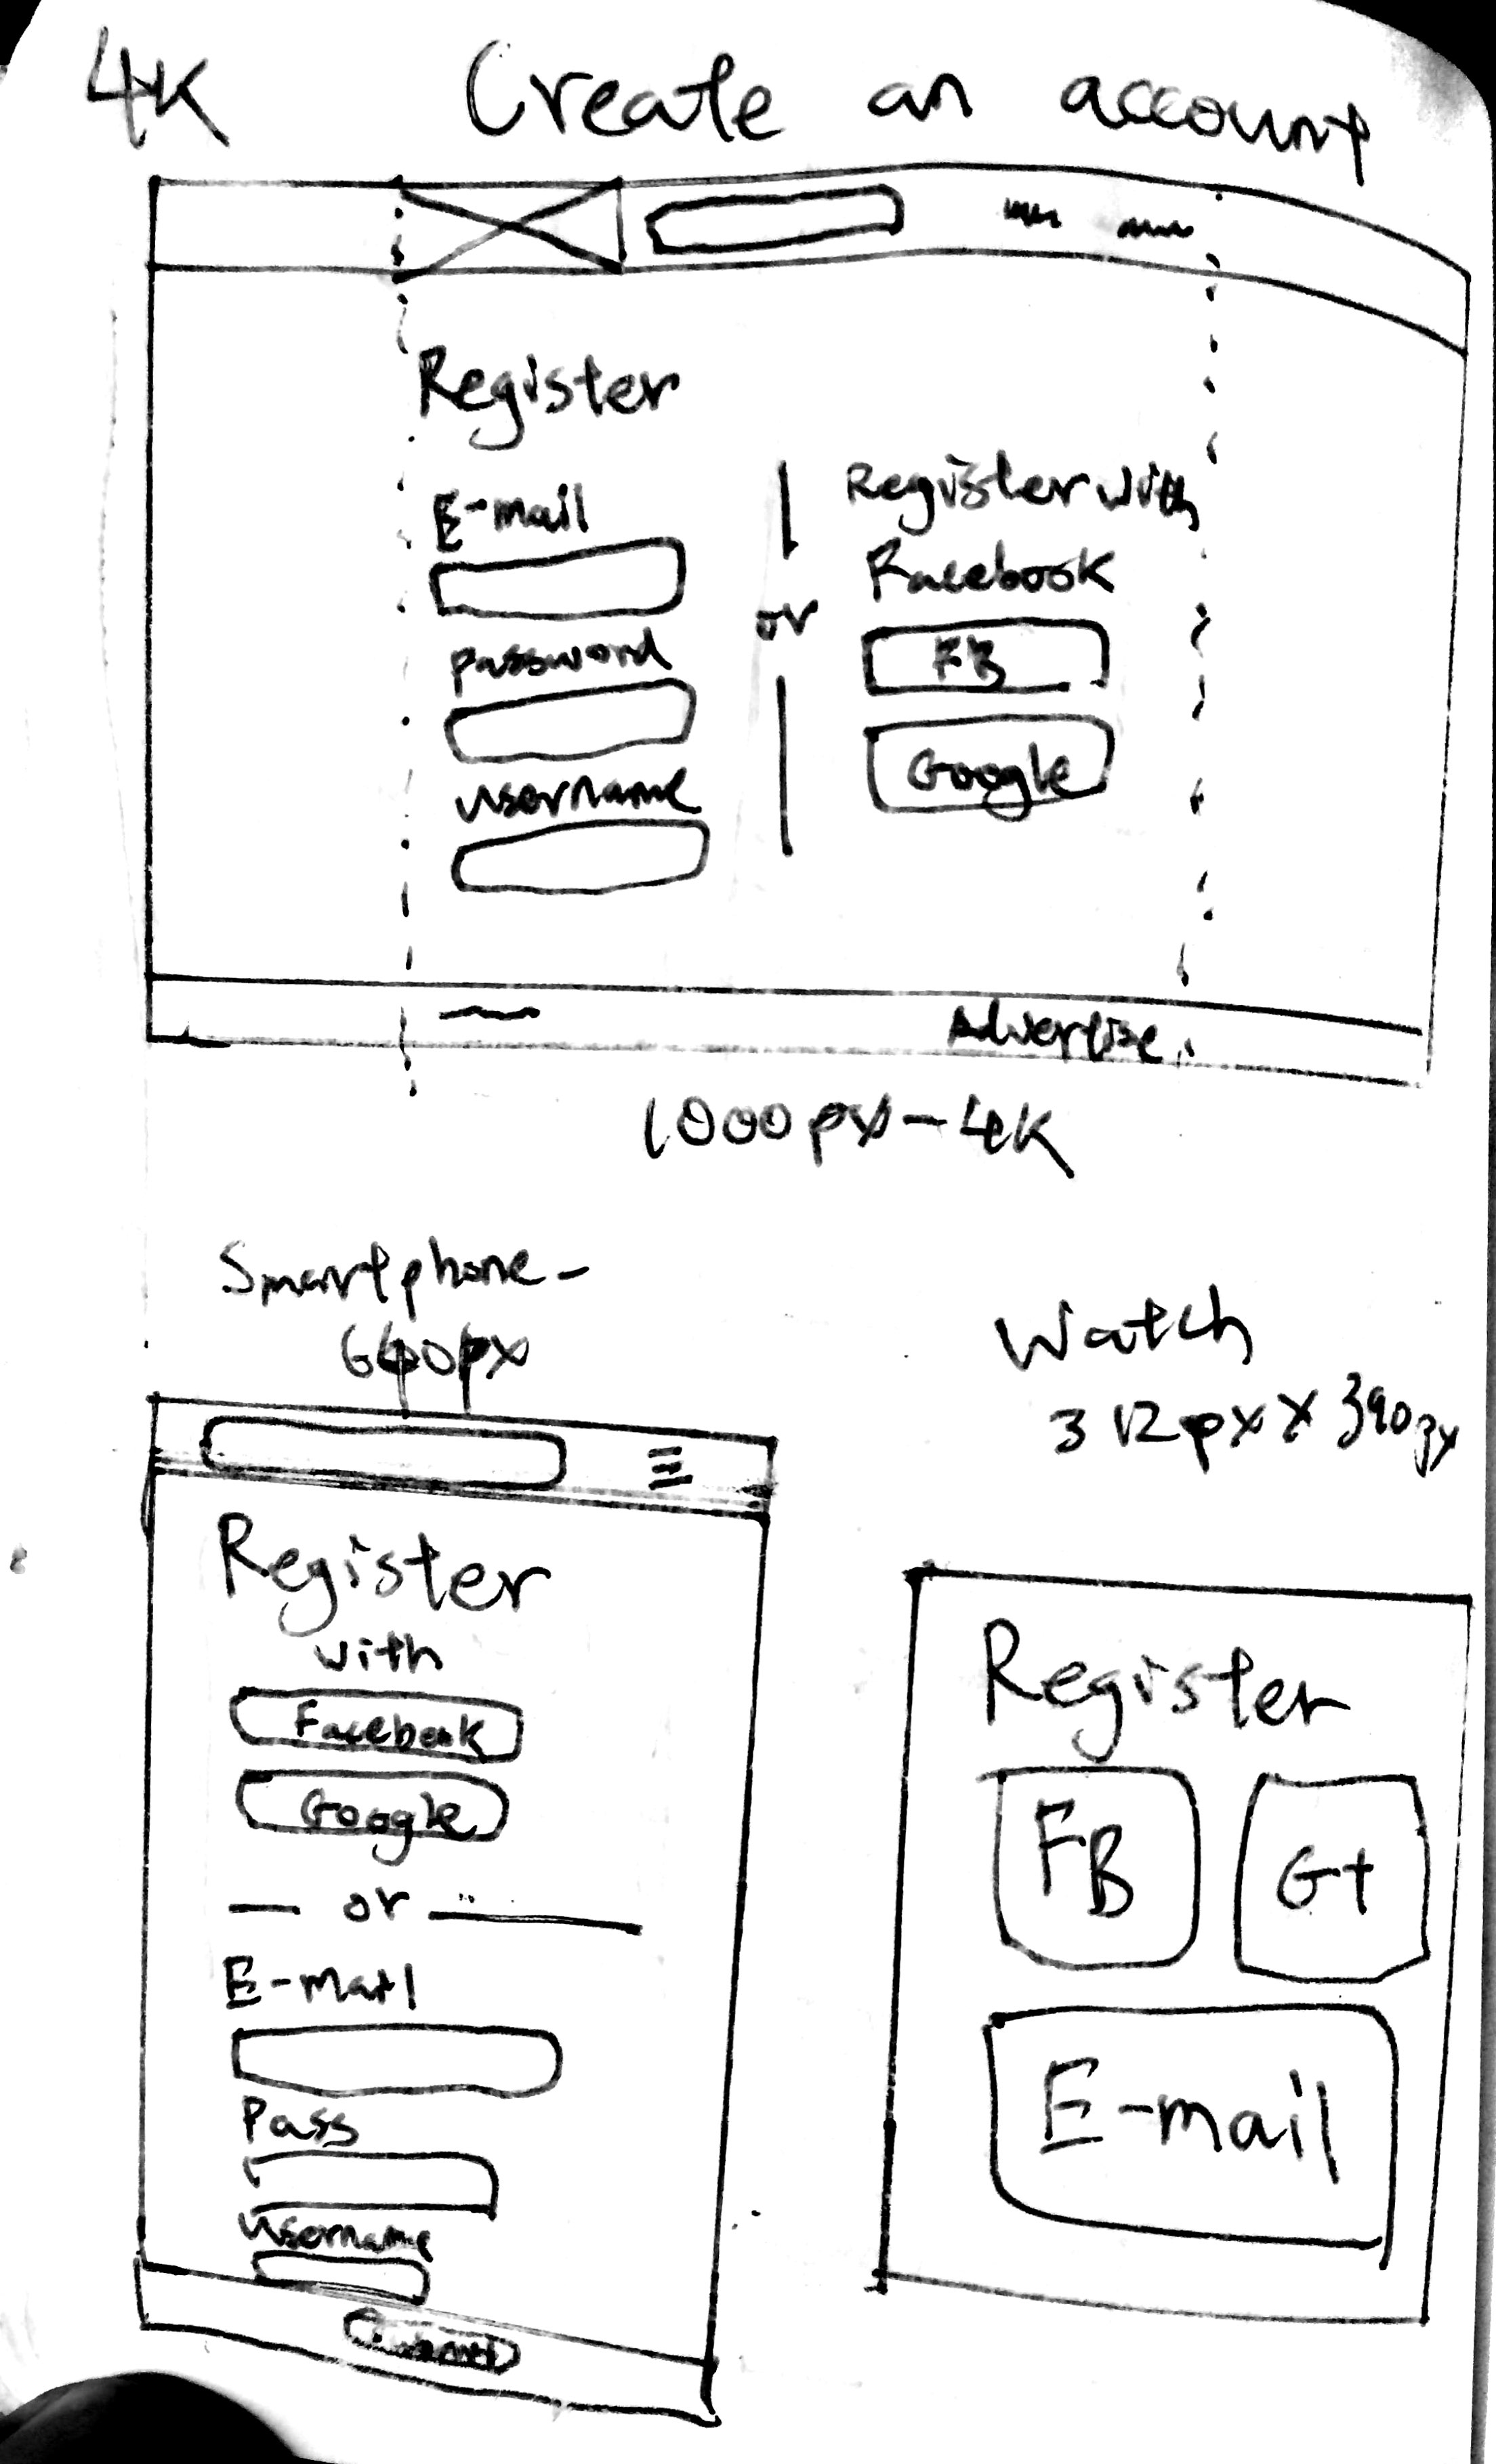 4K Create an account
Register
E-mail
password
username
or
Register with
Facebook
FB
Google
Advertise
1000px-4K
Smartphone-
640px
Register
with
Facebook
Google
or
E-mail
Pass
username
Watch
312px x 390px
Register
FB
G+
E-mail